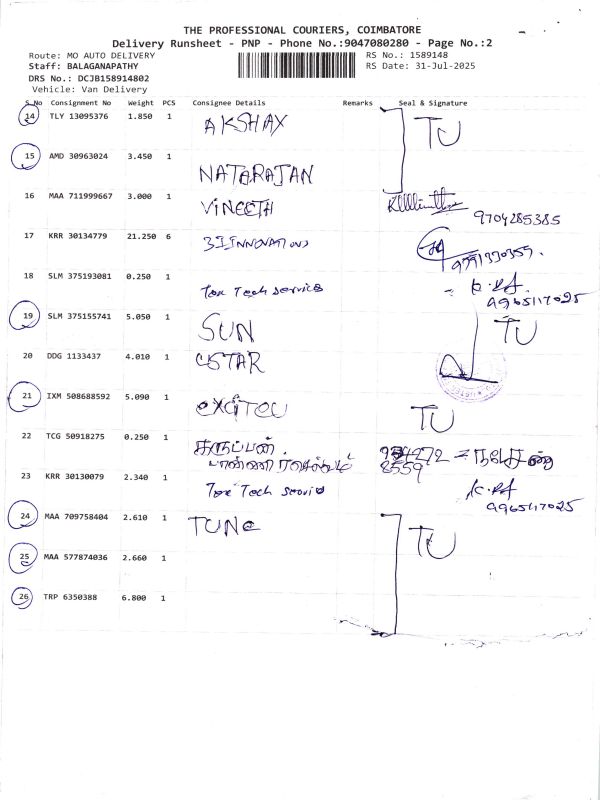 THE PROFESSIONAL COURIERS, COIMBATORE
Delivery Runsheet - PNP - Phone No.:9047080280 - Page No.:2
Route: MO AUTO DELIVERY RS No.: 1589148
Staff: BALAGANAPATHY RS Date: 31-Jul-2025
DRS No.: DCJB158914802
Vehicle: Van Delivery
S.No Consignment No Weight PCS Consignee Details Remarks Seal & Signature
14 TLY 13095376 1.850 1 AKSHAX TU
15 AMD 30963024 3.450 1 NATARAJAN
16 MAA 711999667 3.000 1 VINEETH 9704285385
17 KRR 30134779 21.250 6 3I INNOVATIONS
18 SLM 375193081 0.250 1 Tex Tech service K.RA 9965117025
19 SLM 375155741 5.050 1 SUN TU
20 DDG 1133437 4.010 1 CSTAR
21 IXM 508688592 5.090 1 TU
22 TCG 50918275 0.250 1 கருப்பண்
23 KRR 30130079 2.340 1 Tex Tech service K.RA 9965117025
24 MAA 709758404 2.610 1 TUNE TU
25 MAA 577874036 2.660 1
26 TRP 6350388 6.800 1